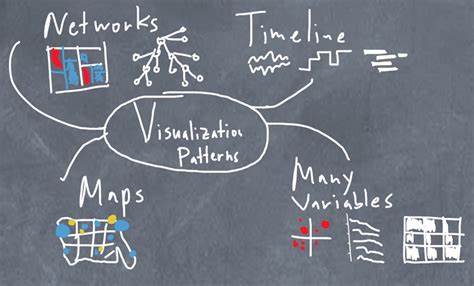 Networks
Timeline
Visualization
Patterns
Maps
Many
Variables